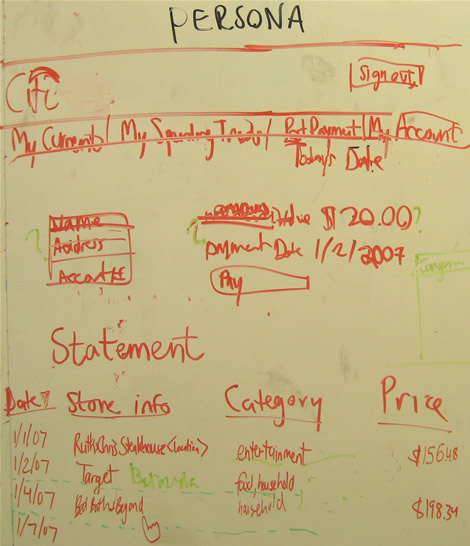 PERSONA
Citi
Sign out
My Current / My Spending Trends / Post Payment / My Account
Today's Date
Name
Address
Account #
Value $120.00?
payment Date 1/2/2007
Pay
?
Statement
Date Store info Category Price
1/1/07 Ruth's Chris Steakhouse <location> entertainment $156.48
1/2/07 Target food, household
1/4/07 Bed Bath & Beyond household $198.34
1/7/07